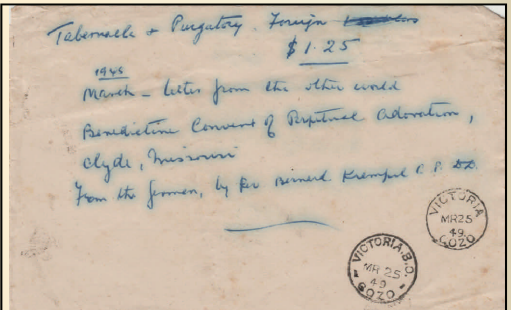 Tabernacle & Purgatory. Foreign
$1.25
1948
March - letter from the other world
Benedictine Convent of Perpetual Adoration,
Clyde, Missouri
From the German, by Rev Bernard Krempel C.P. DD.
VICTORIA
MR25
49
GOZO
VICTORIA.B.O.
MR 25
49
GOZO